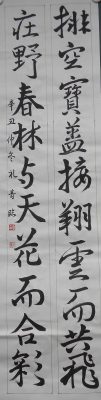 排空寶蓋接翔雲而共飛
庄野春林与天花而合彩
辛丑仲冬